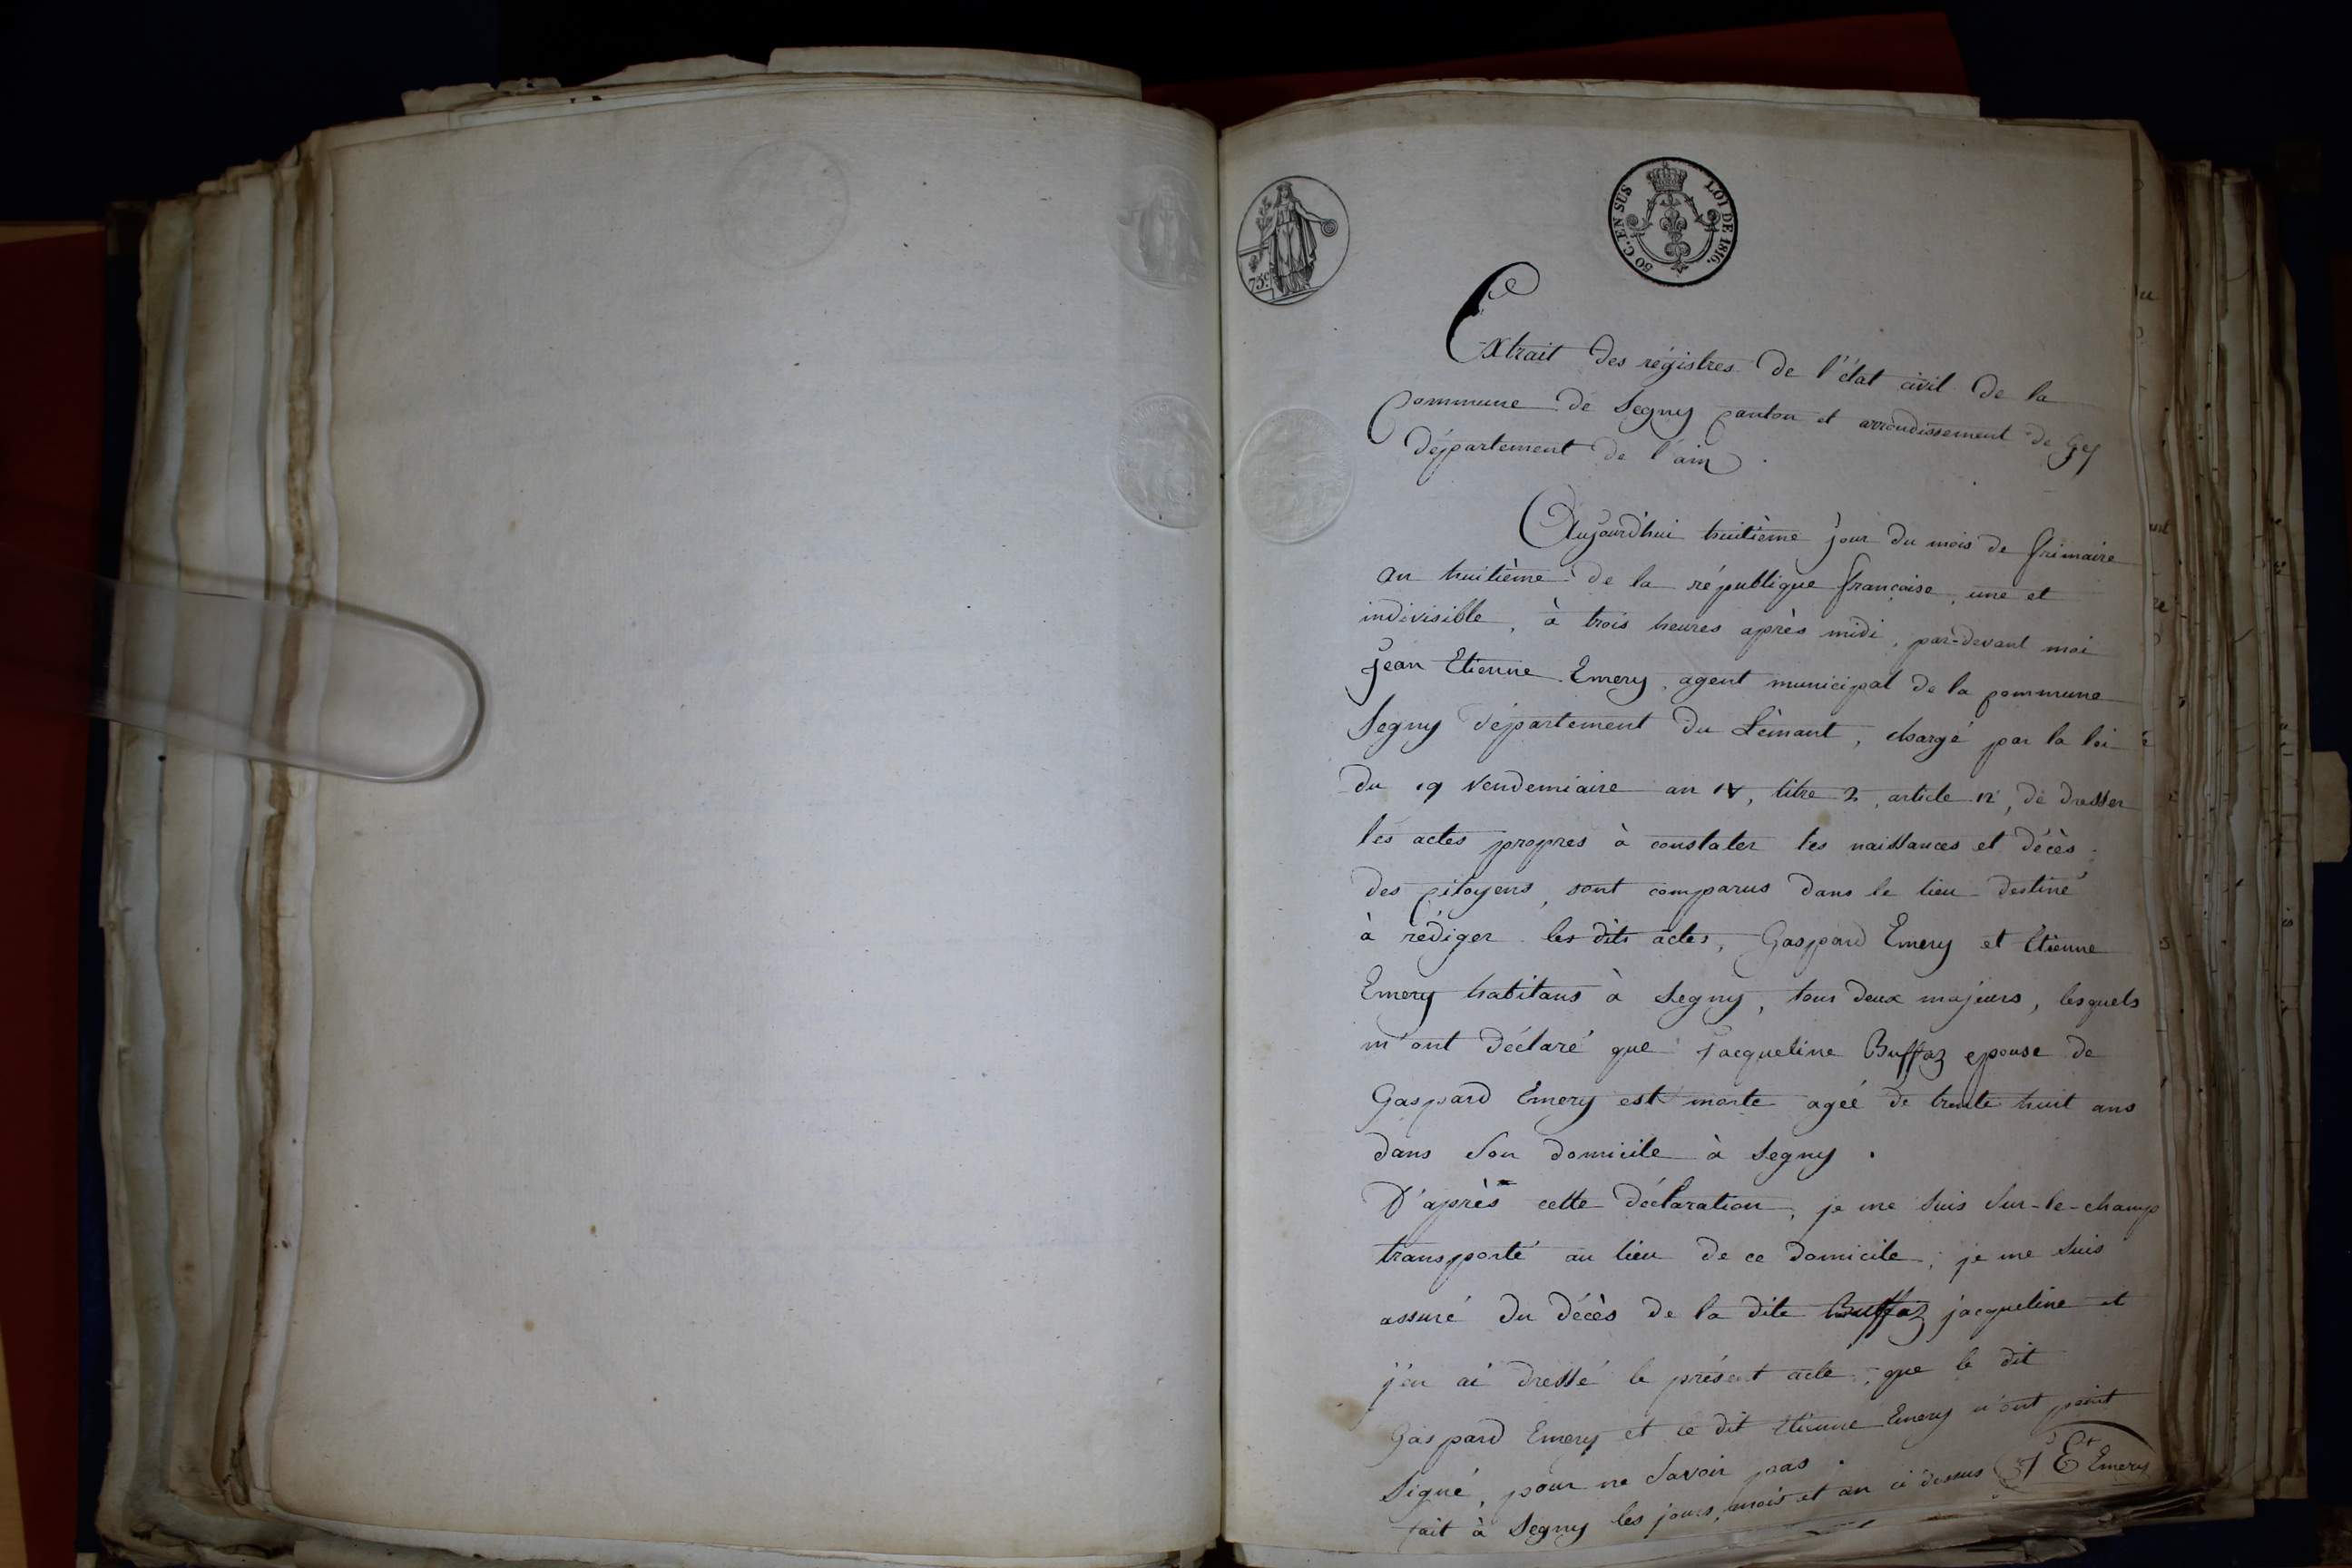 75 c.
50 C. EN SUS LOI DE 1816.
Extrait des régistres de l'état civil de la
Commune de Segny Canton et arrondissement de Gex
département de l'ain.
Aujourd'hui huitième jour du mois de frimaire
an huitième de la république française, une et
indivisible, à trois heures après midi, par-devant moi
Jean Etienne Emery agent municipal de la commune
Segny département du Lémant, chargé par la loi
du 19 Vendemiaire an IV, titre 2, article 12, de dresser
les actes propres à constater les naissances et décès
des Citoyens, sont comparus dans le lieu destiné
à rédiger les dits actes, Gaspard Emery et Etienne
Emery habitans à Segny, tous deux majeurs, lesquels
m'ont déclaré que Jacqueline Buffaz epouse de
Gaspard Emery est morte ageé de trente huit ans
dans Son domicile à Segny.
D'après cette déclaration, je me Suis Sur-le-champ
transporté au lieu de ce domicile; je me Suis
assuré du décès de la dite Buffaz jacqueline et
j'en ai dressé le présent acte, que le dit
Gaspard Emery et le dit Etienne Emery n'ont point
Signé, pour ne Savoir pas.
fait à Segny les jours, mois et an ci dessus J Et Emery